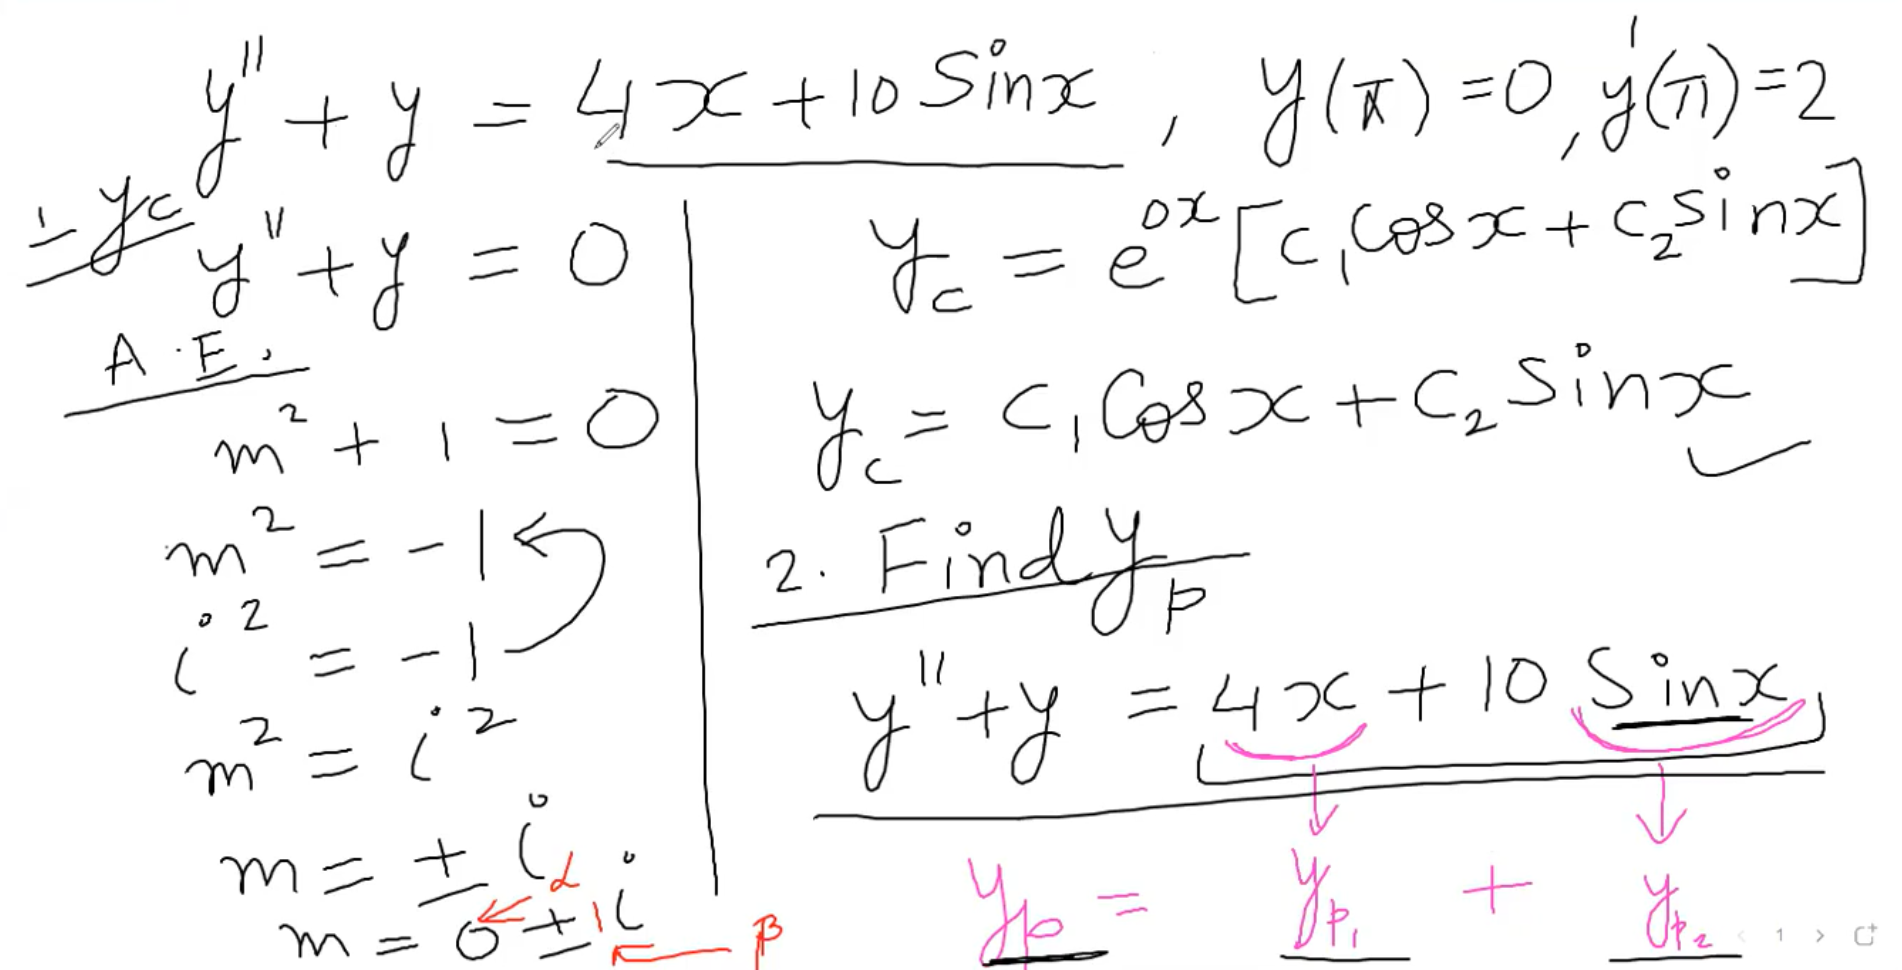 y'' + y = 4x + 10 Sinx , y(π) = 0 , y'(π) = 2
1- yc
y'' + y = 0
A.E.
m² + 1 = 0
m² = -1
i² = -1
m² = i²
m = ± i
m = 0 ± 1i
α
β
yc = e^0x [c₁Cosx + c₂sinx]
yc = c₁Cosx + c₂Sinx
2. Find yp
y'' + y = 4x + 10 Sinx
yp = yp₁ + yp₂
1